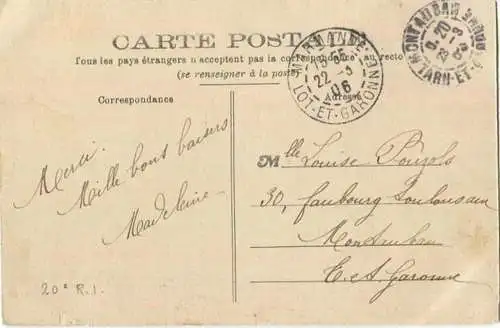 CARTE POSTALE
Tous les pays étrangers n'acceptent pas la correspondance au recto
(se renseigner à la poste)
MARMANDE
22 - 3
06
LOT-ET-GARONNE
MONTAUBAN
TARN-ET-G
Correspondance
Adresse
Merci.
Mille bons baisers
Madeleine
Mlle Louise Pouzols
30, faubourg Toulousain
Montauban
T. et Garonne
20e R.I.